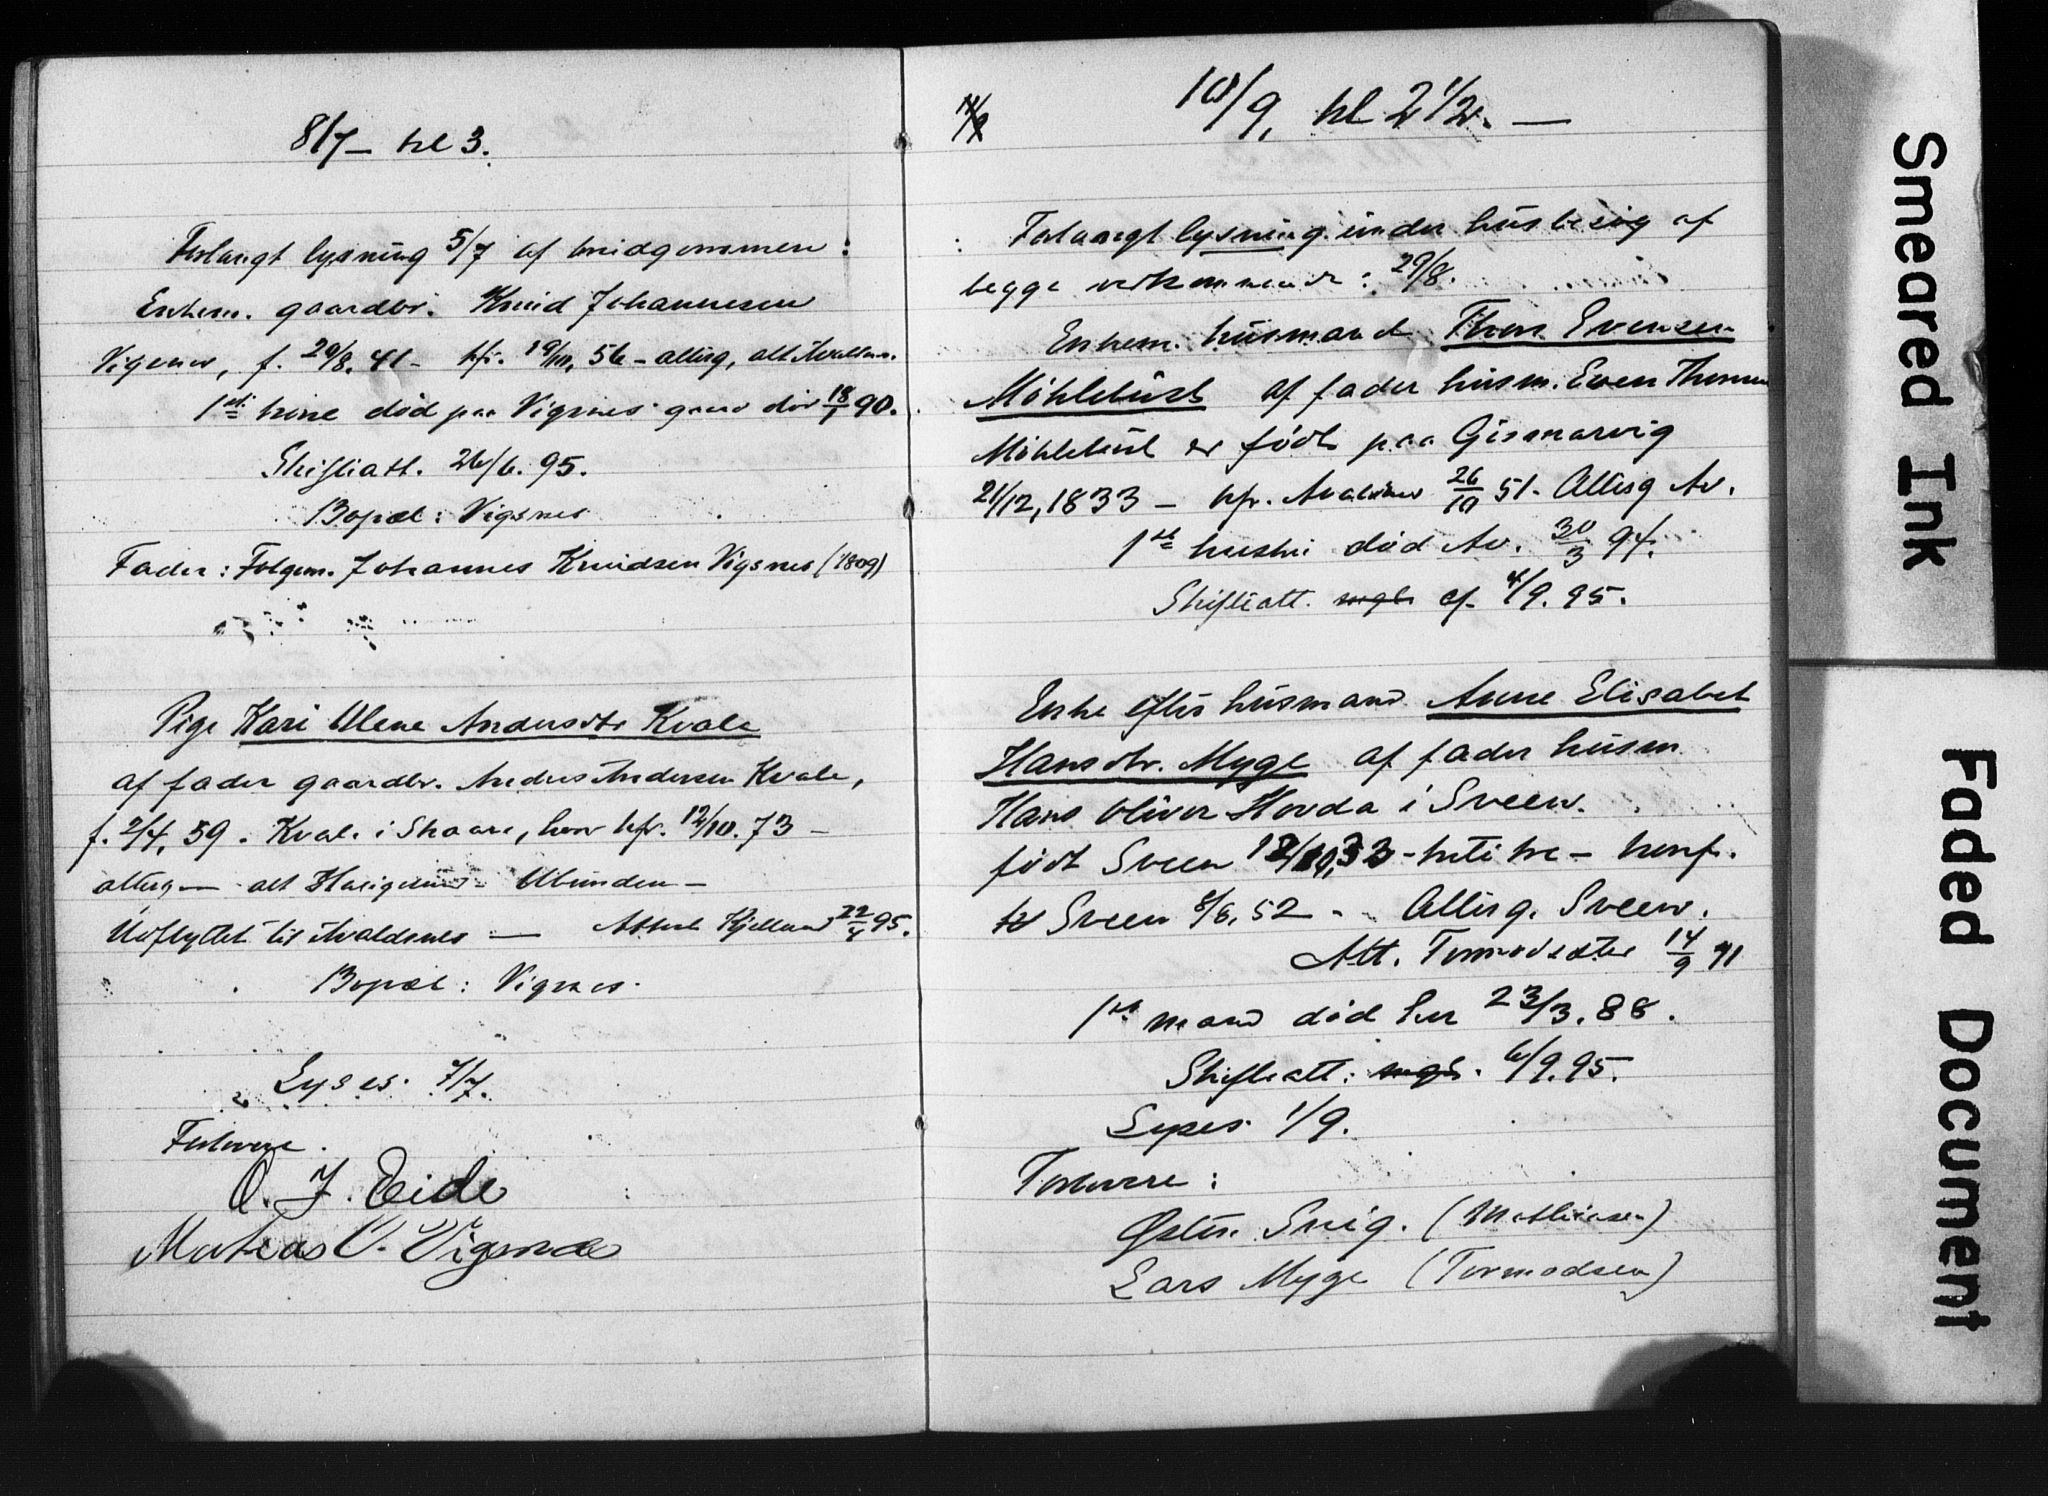 8/7 – kl 3.
Forlangt lysning 5/7 af brudgommen:
Enkem. gaardbr. Knud Johannesen
Vigsnes, f. 20/8, 41 – kfr. 56 – alterg,
1ste kone død paa Vigsnes gaard 90.
Skifteatt. 26/6. 95.
Bopæl: Vigsnes
Fader: Folgem. Johannes Knudsen Vigsnes (1809)
Pige Kari Olene Andersdtr Kvale
af fader gaardbr. Anders Andersen Kvale,
f. 2/4, 59. Kvale i Skaare, hvor kfr. 12/10. 73 –
alterg – att Ubunden –
Udflyttet til Avaldsnes – Attest Kjelland 95.
Bopæl: Vigsnes.
Lyses 7/7.
Forlovere.
O. J. Eide
Matias O. Vigsnes
10/9, kl 2 1/2. —
Forlangt lysning under husbesøg af
begge vedkommende: 29/8.
Enkem. husmand Thore Evensen
Møhlebust af fader husm. Even Thoresen
Møhlebust er født paa Gismarvig
21/12, 1833 – kfr. Avaldsnes 26/10 51. Alterg Av.
1ste hustru død Av. 30/3 94.
Skifteatt. mgl. af 4/9. 95.
Enke efter husmand Anne Elisabet
Hansdtr. Myge af fader husm.
Hans Oliver Hovda i Sveen.
født Sveen – konf.
Sveen 8/8, 52 – Alterg. Sveen.
Att. 14/9 91
1ste mand død her 23/3. 88.
Skifteatt: mgl. 6/9. 95.
Lyses 1/9.
Forlovere:
Østen Snig. (Mathiasen)
Lars Myge (Tormodsen)
Smeared Ink
Faded Document